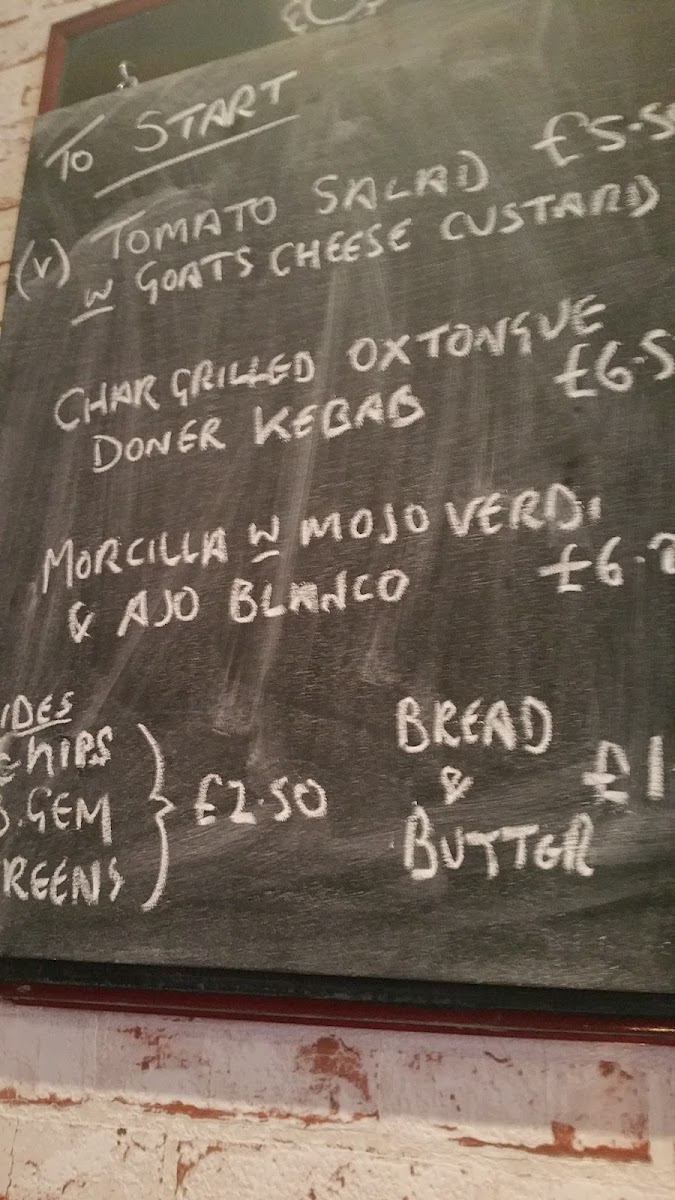 TO START
(V) TOMATO SALAD £5.5
W GOATS CHEESE CUSTARD
CHAR GRILLED OX TONGUE
DONER KEBAB £6.5
MORCILLA W MOJO VERDI
& AJO BLANCO £6.
IDES
CHIPS
B.GEM £2.50
REENS
BREAD
& £1.
BUTTER